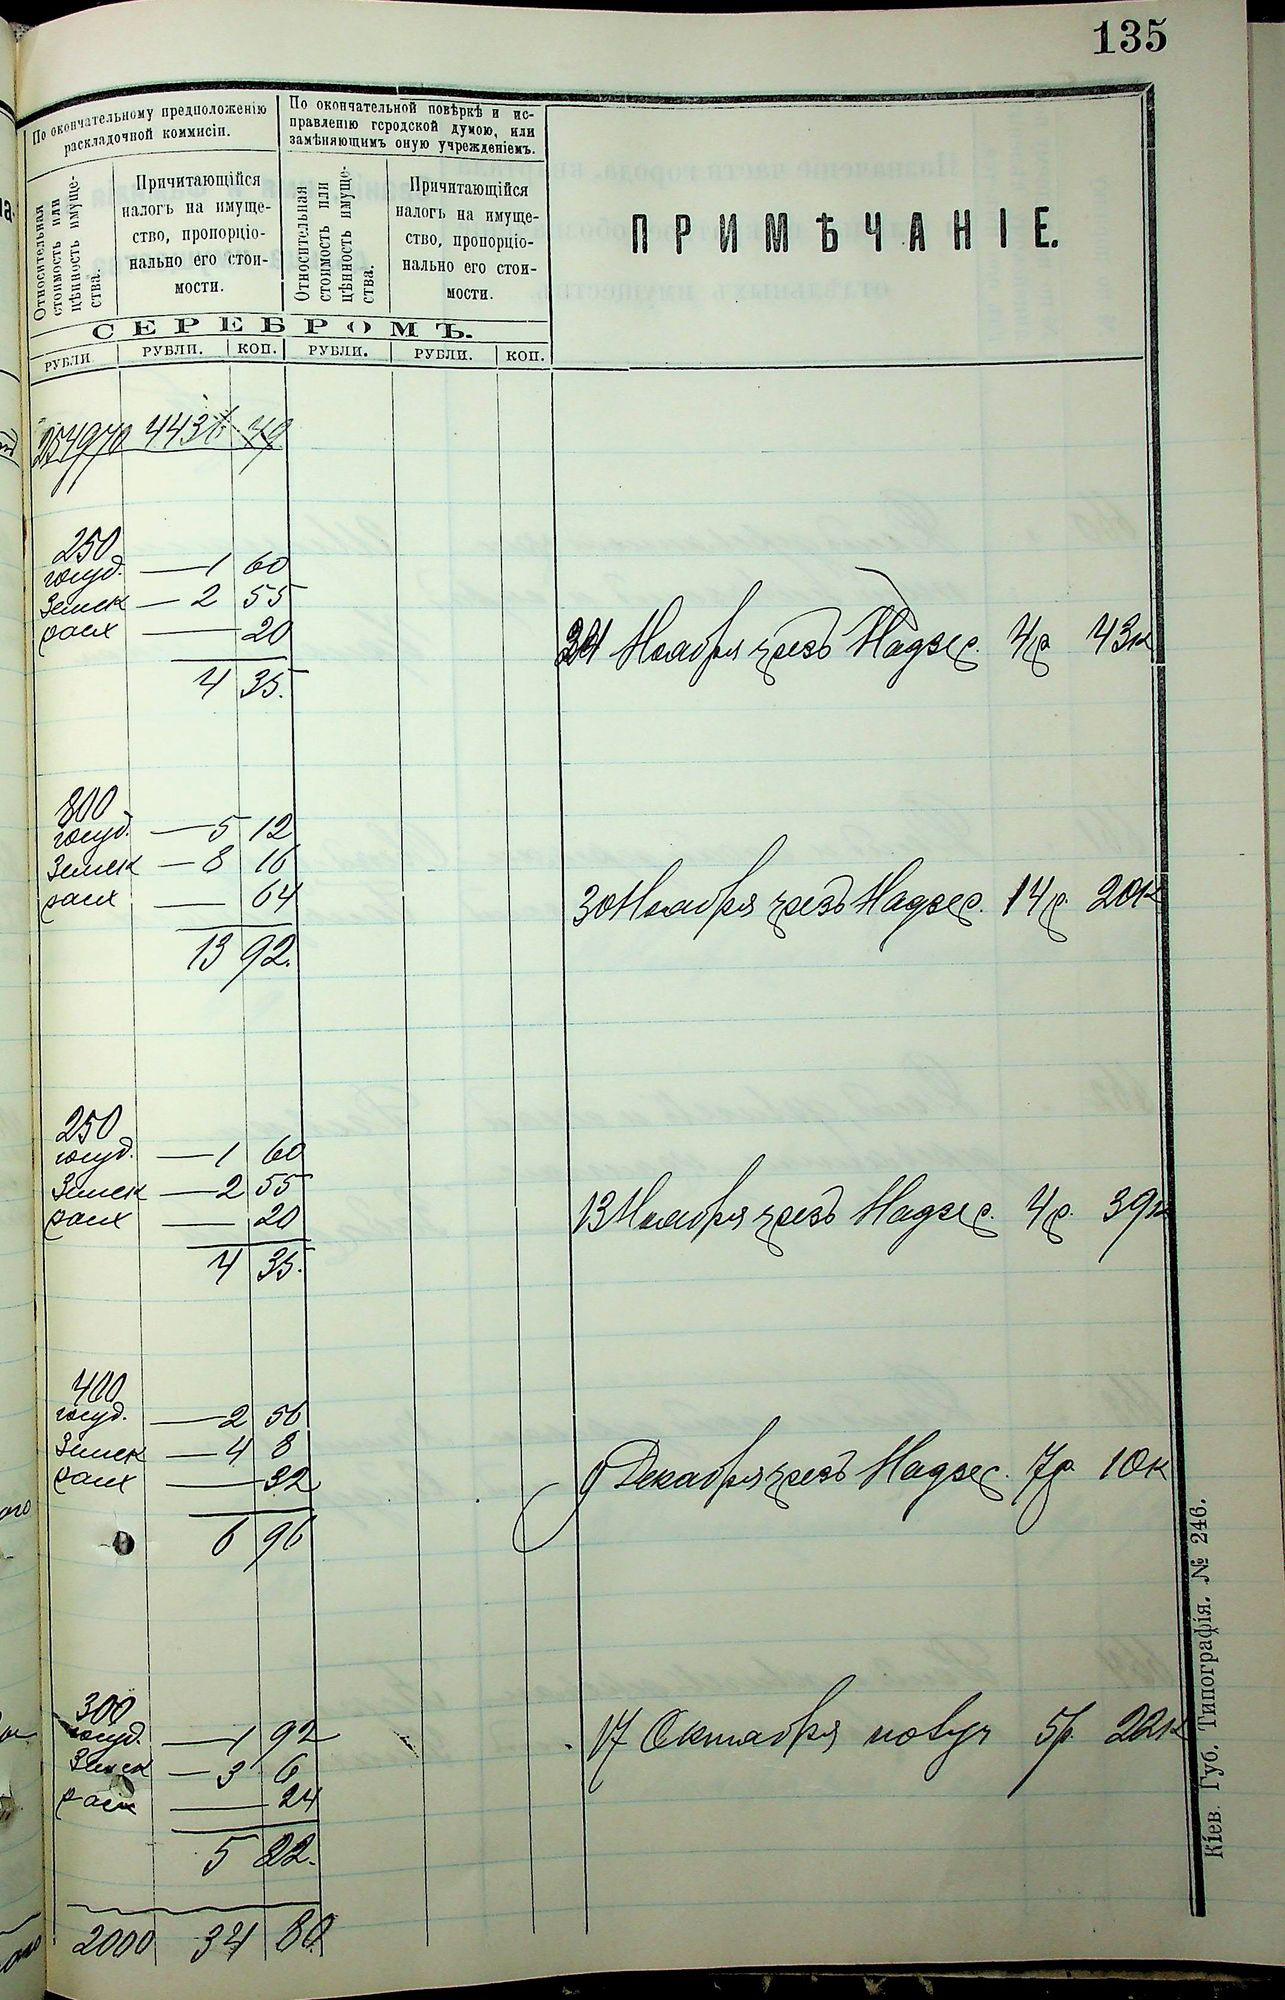 135
По окончательному предположенію
раскладочной коммисіи.
По окончательной повѣркѣ и ис-
правленію городской думою, или
замѣняющимъ оную учрежденіемъ.
ПРИМѢЧАНІЕ.
Относительная
стоимость или
цѣнность имуще-
ства.
Причитающійся
налогъ на имуще-
ство, пропорціо-
нально его стои-
мости.
Относительная
стоимость или
цѣнность имуще-
ства.
Причитающійся
налогъ на имуще-
ство, пропорціо-
нально его стои-
мости.
СЕРЕБРОМЪ.
РУБЛИ. РУБЛИ. КОП. РУБЛИ. РУБЛИ. КОП.
254970 4436 79
250
госуд. — 1 60
Земск — 2 55
расх — 20
4 35.
Ноября чрезъ Надзер. 4р 43к
800
госуд. — 5 12
Земск — 8 16
расх — 64
13 92.
30 Ноября чрезъ Надзер. 14р. 20к
250
госуд. — 1 60
Земск — 2 55
расх — 20
4 35.
13 Ноября чрезъ Надзер. 4р. 39к
400
госуд. — 2 56
Земск — 4 8
расх — 32
6 96
9 Декабря чрезъ Надзер. 7р 10к
300
госуд. — 1 92
Земск — 3 6
расх — 24
5 22.
17 Октября 5р. 22к
2000 34 80
Кіев. Губ. Типографія. № 246.